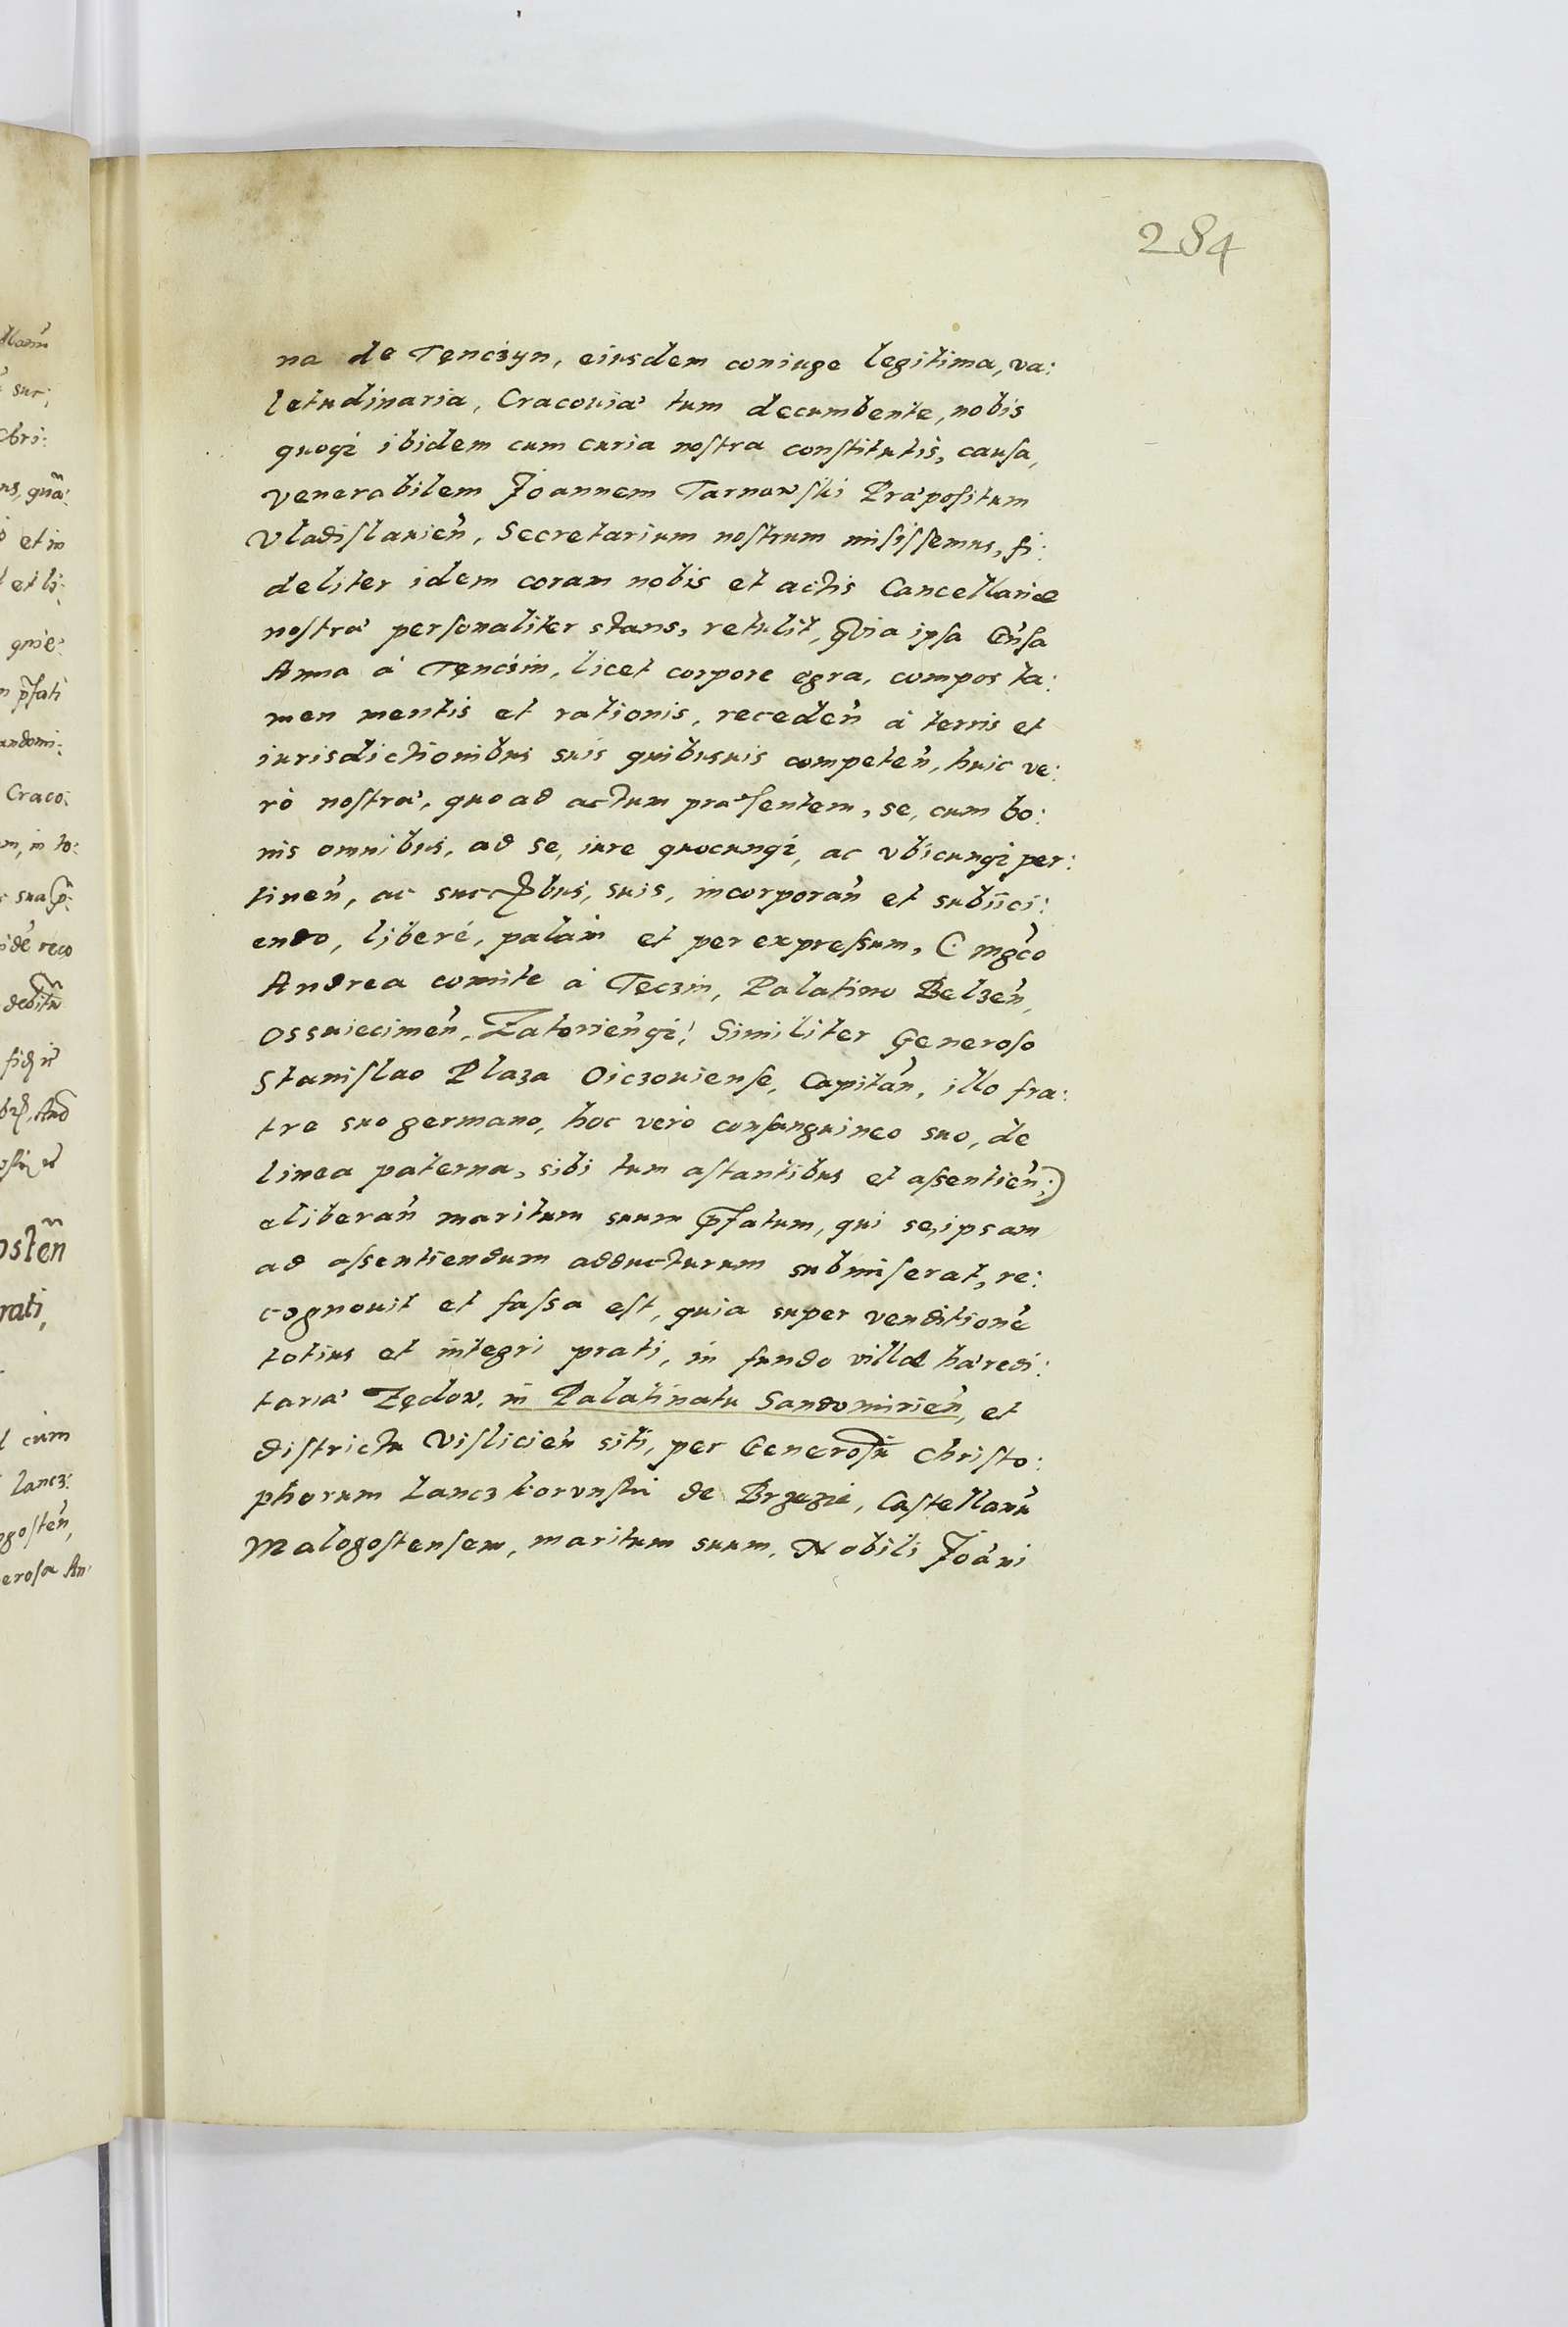 284
na de Tęnczyn, eiusdem coniuge legitima, va:
letudinaria, Cracouiæ tum decumbente, nobis
quoqꝫ ibidem cum curia noſtra conſtitutis, cauſa,
venerabilem Joannem Tarnowſki Præpoſitum
Vladiſlauień, Secretarium noſtrum miſiſſemus, fi:
deliter idem coram nobis et actis Cancellariæ
noſtræ perſonaliter stans, retulit, Quia ipſa Gńſa
Anna à Tęnczin, licet corpore egra, compos ta:
men mentis et rationis, recedeń à terris et
iurisdictionibus suis quibusuis competeń, huic ve:
rò noſtræ, quo ad actum præſentem, se, cum bo:
nis omnibus, ad se, iure quocunqꝫ, ac vbicunqꝫ per:
tineń, ac succꝭbus, suis, incorporań et subiici:
endo, liberé, palàm et per expreſsum, C mgco
Andrea comite à Tęczin, Palatino Belzeń,
Osswiecimeń, Zatorieńqꝫ, Similiter Generoſo
Stanislao Plaza Oiczouienſe, Capitań, illo fra:
tre suo germano, hoc verò conſanguineo suo, de
linea paterna, sibi tum aſtantibus et aſsentień;)
eliberań maritum suum pſatum, qui se, ipsam
ad aſsentiendum adducturum submiſerat, re:
cognouit et faſsa eſt, quia super venditioné
totius et integri prati, in fundo villæ hæredi:
tariæ Zędow, in Palatinatu Sandomirień, et
diſtrictu Viſlicień siti, per Generoſū Chriſto:
phorum Lanczkorunſki de Brzezie, Caſtellanū
Malogoſtenſem, maritum suum, Nobili Joāni
dlań
sur;
bri:
ns, quā:
et in
et li:
quie:
pſati
andomi:
Craco:
m, in to:
sua p:
idé reco
debitū
And
ostēn
rati,
cum
Lancz:
ogoſteń,
eroſa An: